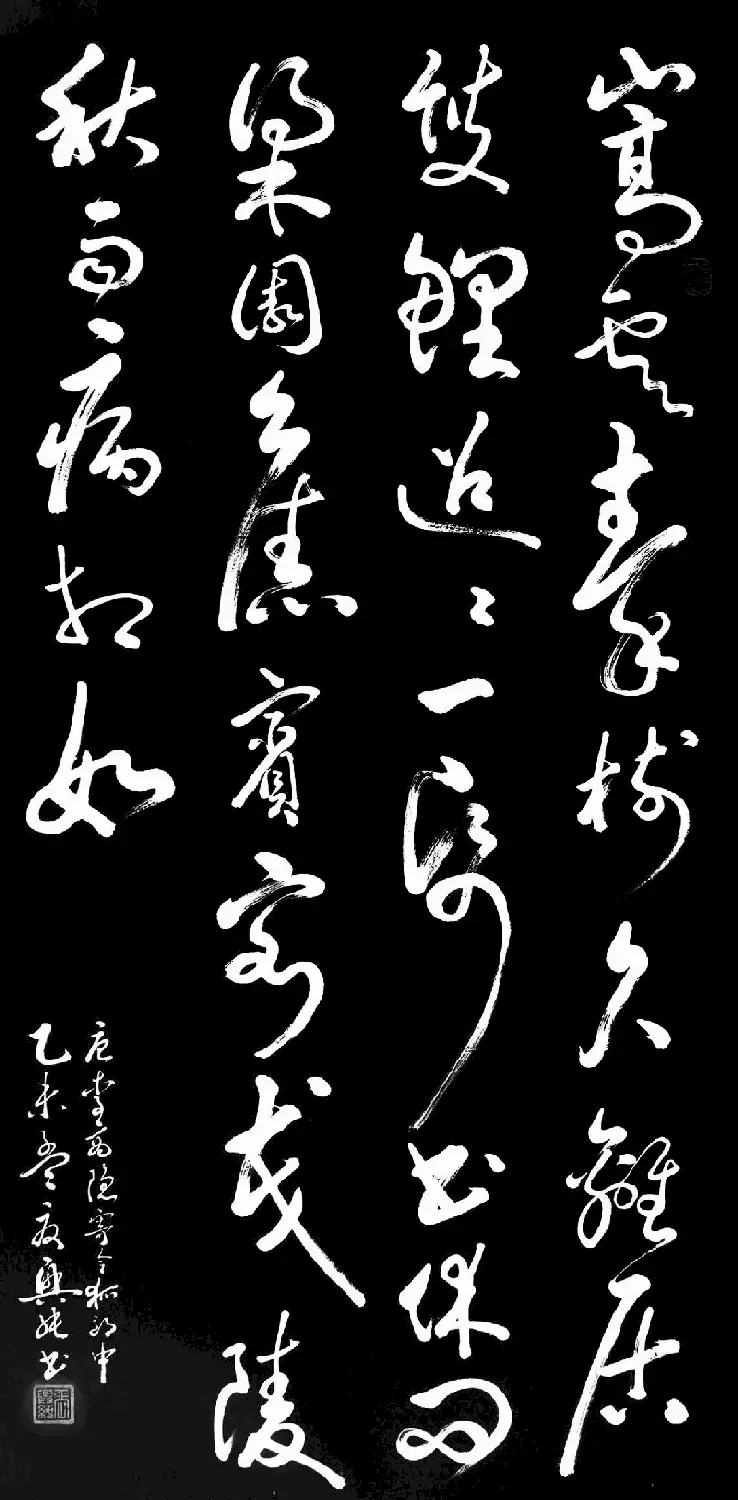 嵩雲秦樹久離居
雙鯉迢〻一紙書休問
梁園舊賓客茂陵
秋雨病相如
唐李商隐寄令狐郎中
乙未夜興書